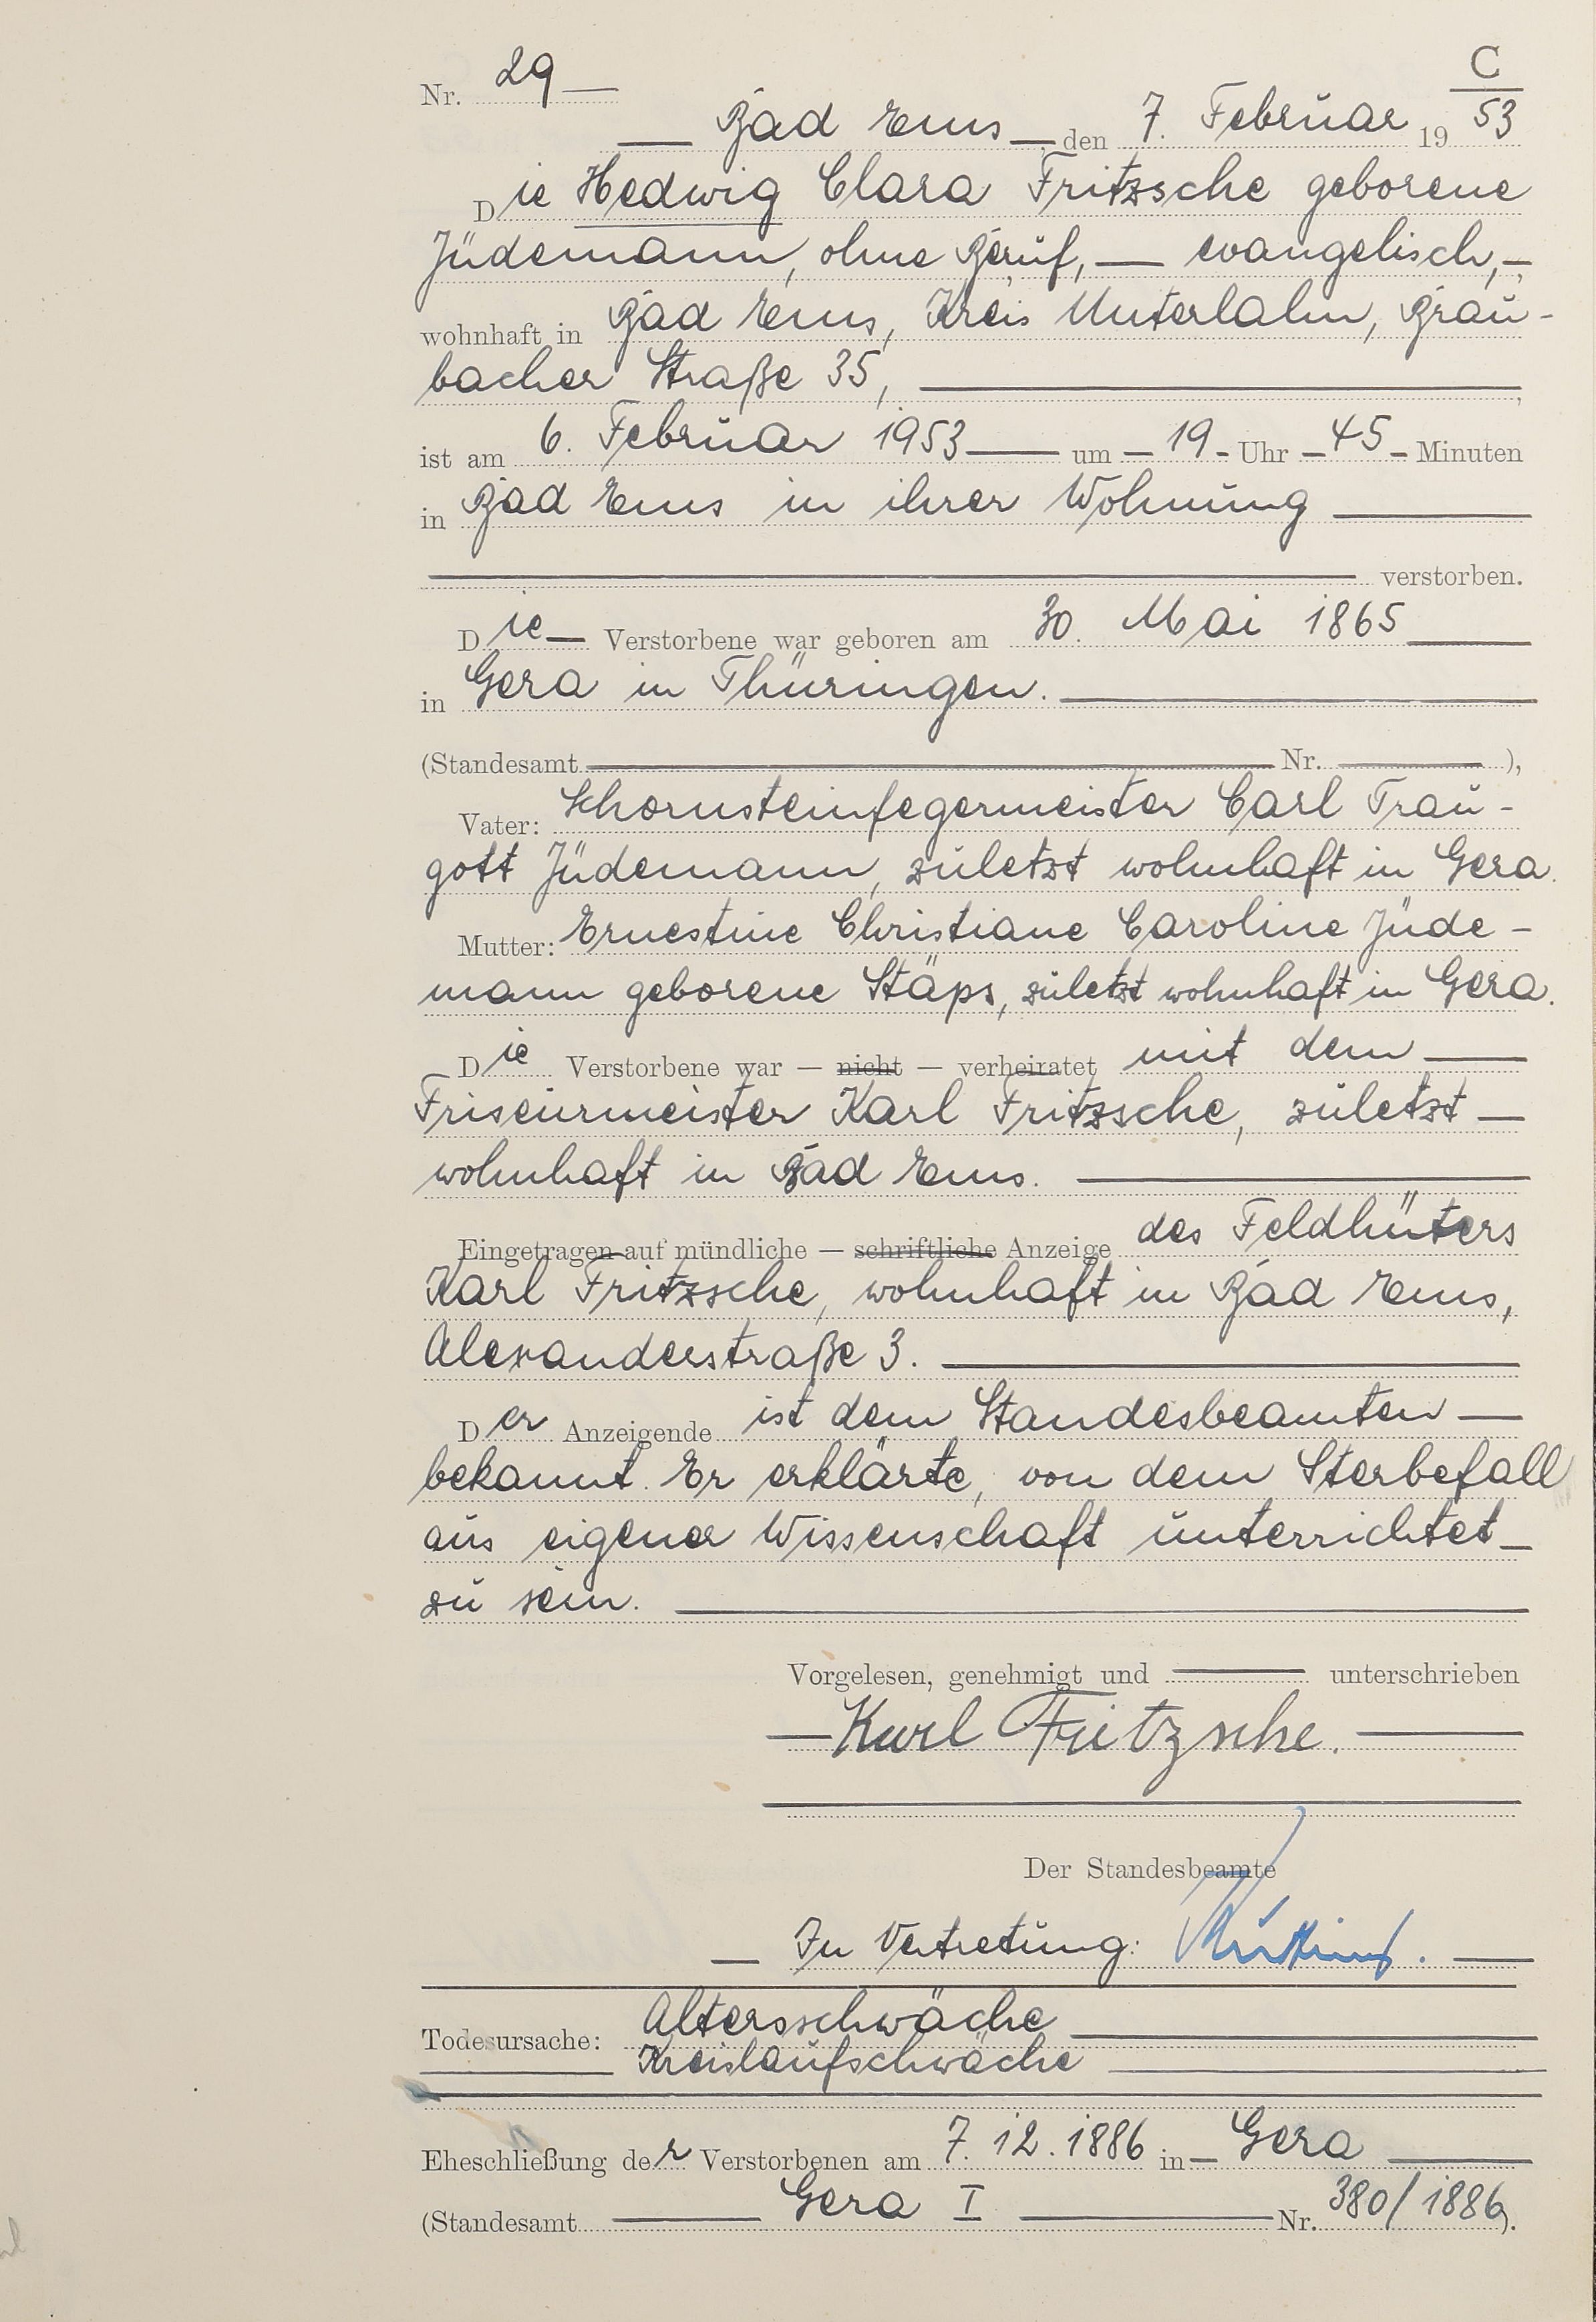 C
Nr. 29 —
— Bad Ems —, den 7. Februar 19 53
Die Hedwig Clara Fritzsche geborene
Jüdemann, ohne Beruf, — evangelisch, —
wohnhaft in Bad Ems, Kreis Unterlahn, Brau-
bacher Straße 35, —,
ist am 6. Februar 1953 — um — 19 - Uhr — 45 - Minuten
in Bad Ems in ihrer Wohnung —
— verstorben.
Die — Verstorbene war geboren am 30. Mai 1865 —
in Gera in Thüringen. —
(Standesamt — Nr. — ),
Vater: Schornsteinfegermeister Carl Trau-
gott Jüdemann, zuletzt wohnhaft in Gera.
Mutter: Ernestine Christiane Caroline Jüde-
mann geborene Stäps, zuletzt wohnhaft in Gera.
Die Verstorbene war — nicht — verheiratet mit dem —
Friseurmeister Karl Fritzsche, zuletzt —
wohnhaft in Bad Ems. —
Eingetragen auf mündliche — schriftliche Anzeige des Feldhüters
Karl Fritzsche, wohnhaft in Bad Ems,
Alexanderstraße 3. —
Der Anzeigende ist dem Standesbeamten —
bekannt. Er erklärte, von dem Sterbefall
aus eigener Wissenschaft unterrichtet —
zu sein. —
Vorgelesen, genehmigt und — unterschrieben
— Karl Fritzsche. —
Der Standesbeamte
— In Vertretung: —
Todesursache: Altersschwäche —
— Kreislaufschwäche —
Eheschließung der Verstorbenen am 7. 12. 1886 in — Gera —
(Standesamt — Gera I — Nr. 380/1886).